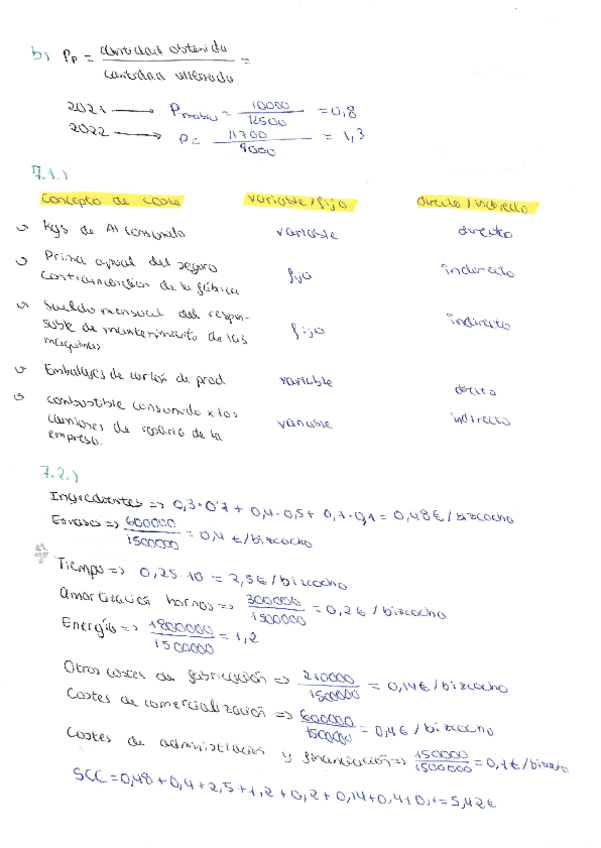 b) Pp = cantidad obtenida / cantidad utilizada =
2021 → P = 10000 / 12500 = 0,8
2022 → P = 11700 / 9000 = 1,3
7.1.)
Concepto de coste variable/fijo directo/indirecto
Kgs de Al consumido variable directo
Prima anual del seguro
contraincendios de la fábrica fijo indirecto
Sueldo mensual del respon-
sable de mantenimiento de las
maquinas fijo indirecto
Embalajes de cartón de prod. variable directo
combustible consumido x los
camiones de reparto de la
empresa. variable indirecto
7.2.)
Ingredientes => 0,3·0'7 + 0,4·0,5 + 0,7·0,1 = 0,48€/bizcocho
Envases => 600000 / 1500000 = 0,4 €/bizcocho
Tiempo => 0,25·10 = 2,5€/bizcocho
Amortización hornos => 300000 / 1500000 = 0,2€/bizcocho
Energía => 1800000 / 1500000 = 1,2
Otros costes de fabricación => 210000 / 1500000 = 0,14€/bizcocho
Costes de comercialización => 600000 / 1500000 = 0,4€/bizcocho
Costes de administración y financiación => 150000 / 1500000 = 0,1€/bizcocho
SCC = 0,48 + 0,4 + 2,5 + 1,2 + 0,2 + 0,14 + 0,4 + 0,1 = 5,42€